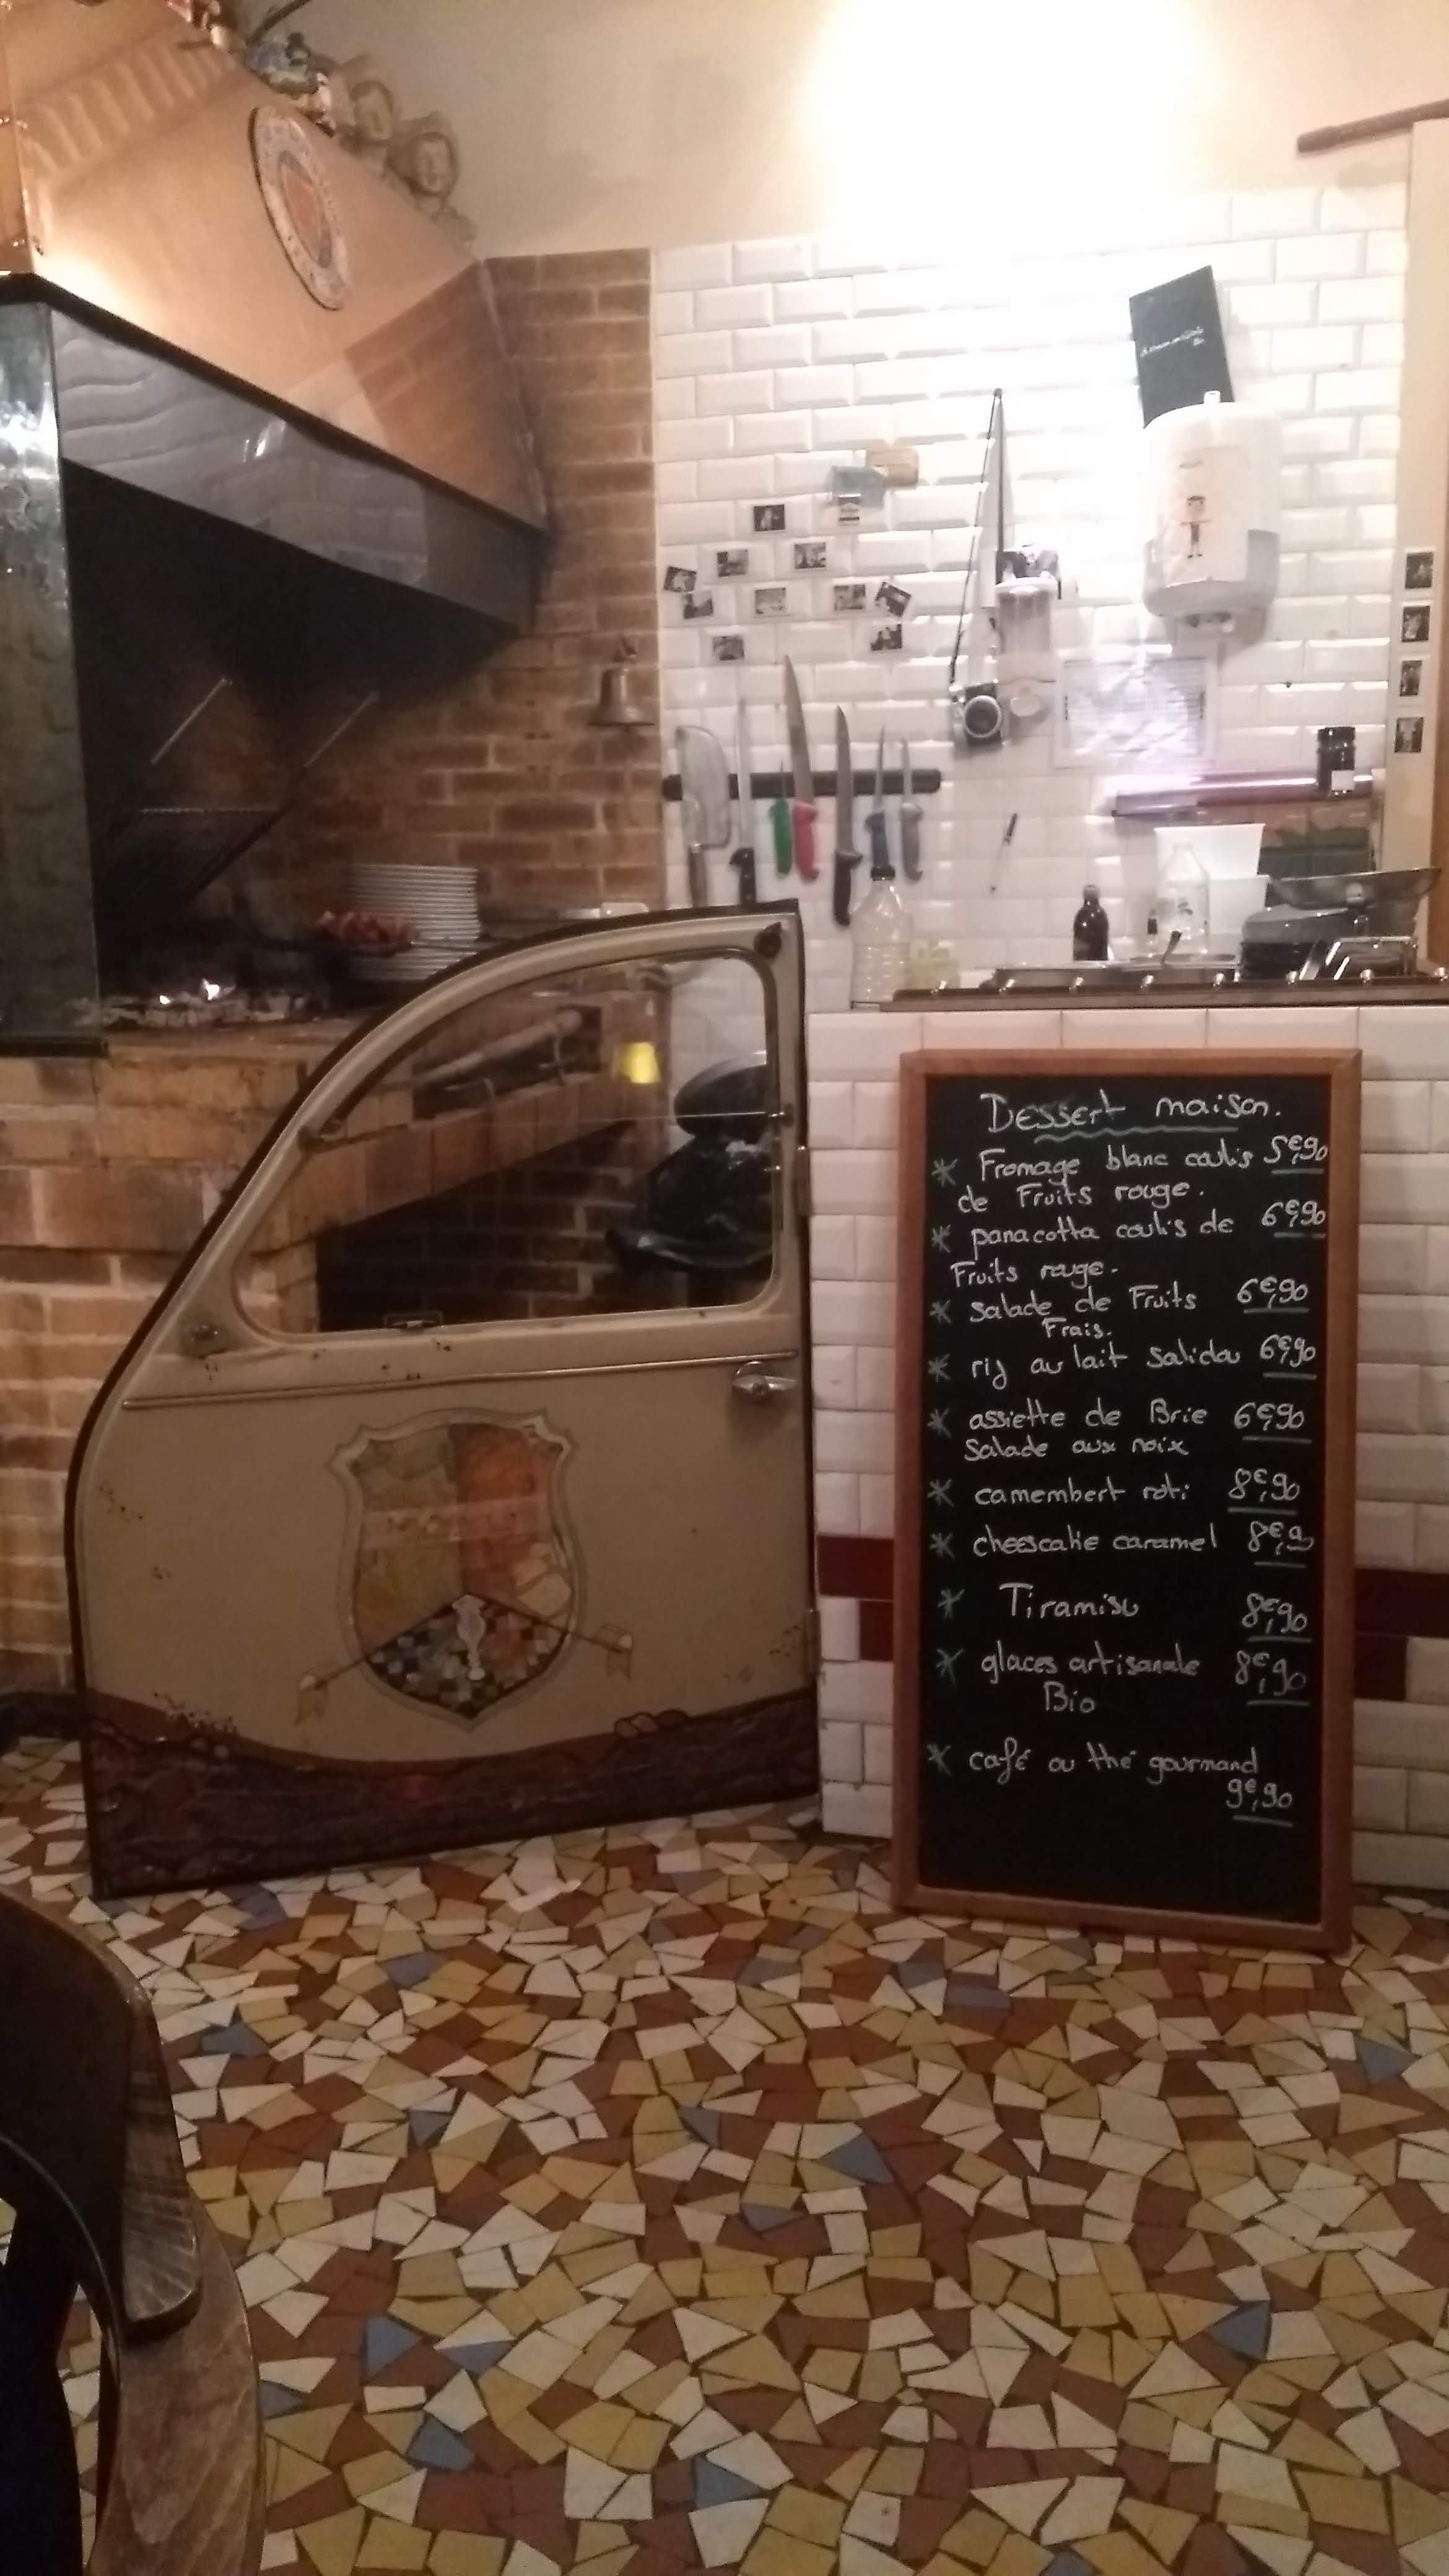 Dessert maison.
* Fromage blanc coulis 5€,90
de Fruits rouge.
* panacotta coulis de 6€,90
Fruits rouge.
* salade de Fruits 6€,90
Frais.
* riz au lait salidou 6€,90
* assiette de Brie 6€,90
Salade aux noix
* camembert roti 8€,90
* cheescake caramel 8€,90
* Tiramisu 8€,90
* glaces artisanale 8€,90
Bio
* café ou thé gourmand
9€,90